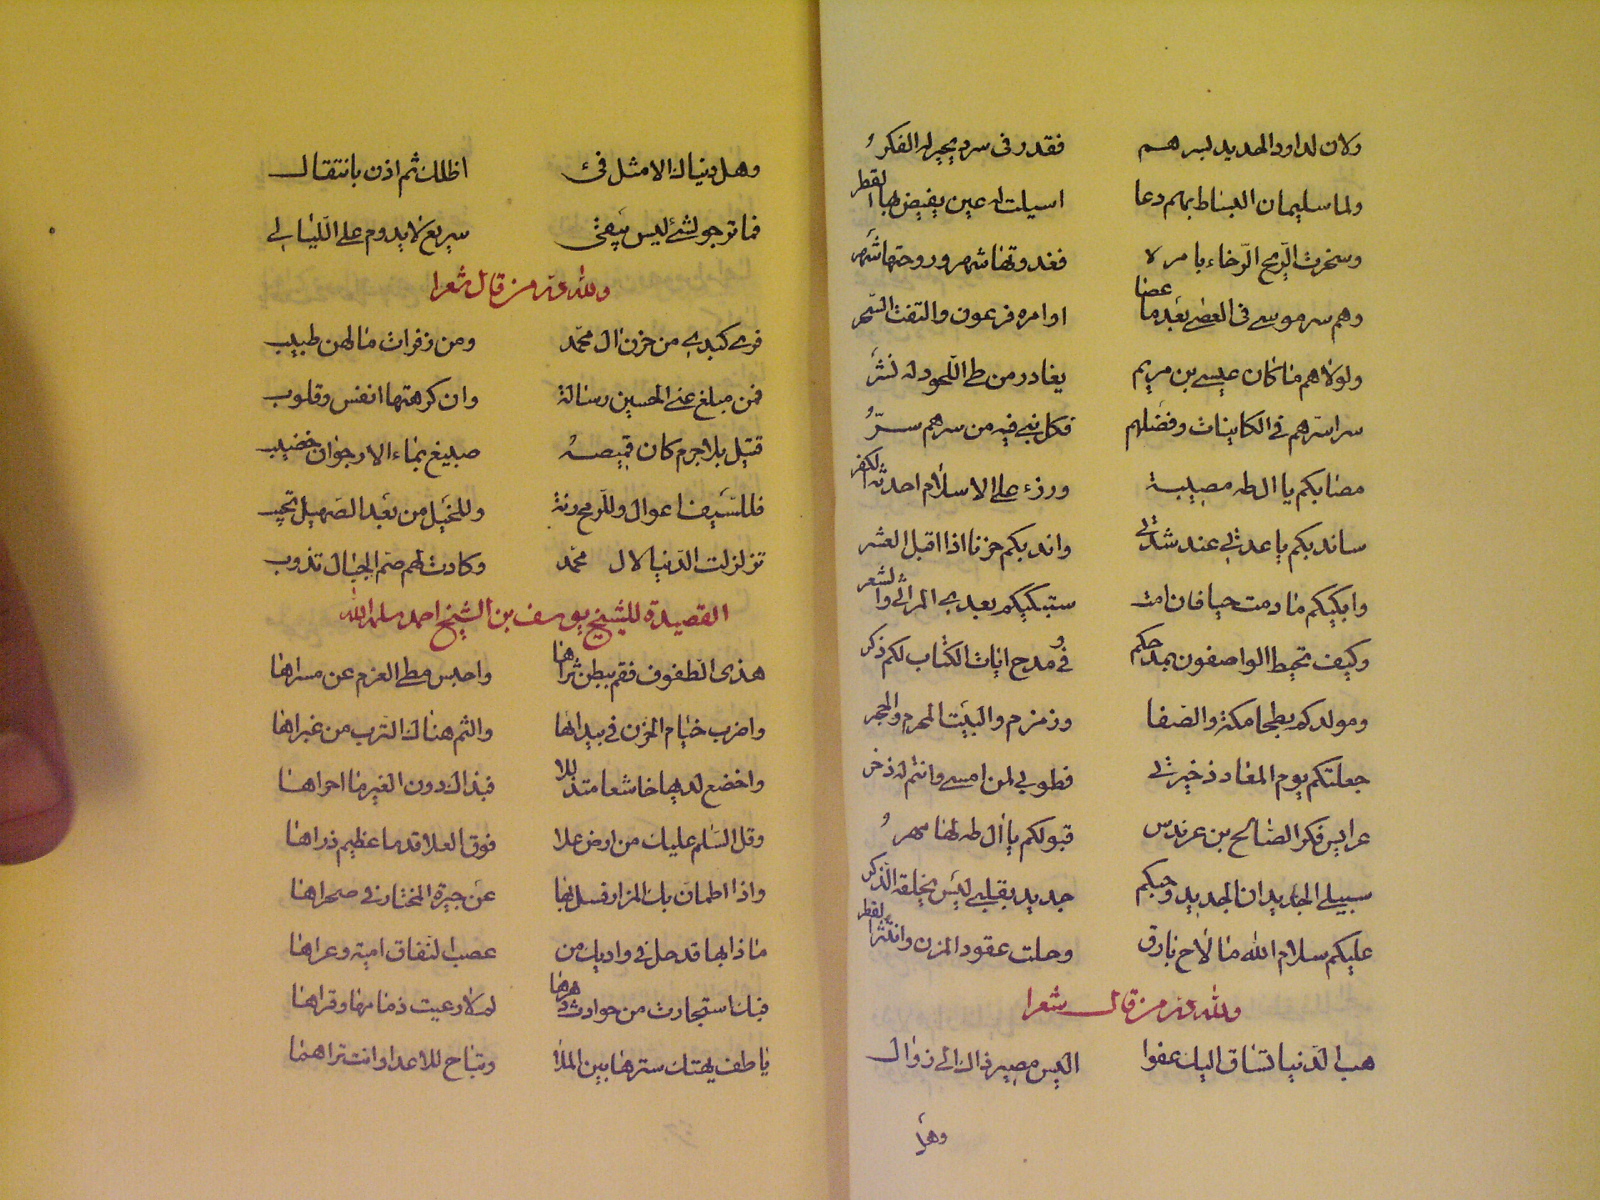 ولان لداود الحديد لسرهم فقدر في سرد يحير له الفكر
ولما سليمان البساط بهم دعا اسيلت له عين يفيض بها القطر
وسخرت الريح الرخاء بامره لا فغدوتها شهر وروحتها شهر
وهم سر موسى في العصى بعدما عصا اوامره فرعون والتقف السحر
ولولاهم ما كان عيسى بن مريم يغادر من طي اللحود له نشر
سرا سرهم في الكاينات وفضلهم فكل نبي فيه من سرهم سر
مصابكم يا ال طه مصيبة ورزء على الاسلام احدثه الكفر
ساندبكم يا عدتي عند شدتي واندبكم حزنا اذا اقبل العشر
وابكيكم ما دمت حيا فان امت ستبكيكم بعدي المراثي والشعر
وكيف تحيط الواصفون بمدحكم وفي مدح ايات الكتاب لكم ذكر
ومولدكم بطحا مكة والصفا وزمزم والبيت المحرم والحجر
جعلتكم يوم المعاد ذخيرتي فطوبى لمن امسى وانتم له ذخر
عرايس فكر الصالح بن عرندس قبولكم يا ال طه لها مهر
سبيلي الجديدان الجديد وحبكم جديد بقلبي ليس يخلقه الذكر
عليكم سلام الله ما لاح بارق وحلت عقود المزن وانتثر القطر
ولله در من قال شعرا
هب الدنيا تساق اليك عفوا اليس مصير ذاك الى زوال
وهل
وهل دنياك الا مثل فئ اظلك ثم اذن بانتقال
فما ترجو لشئ ليس يبقى سريع لا يدوم على الليالي
ولله در من قال شعرا
فرى كبدي من حزن ال محمد ومن زفرات ما لهن طبيب
فمن مبلغ عني الحسين رسالة وان كرهتها انفس وقلوب
قتيل بلا جرم كان قميصه صبيغ بماء الارجوان خضيب
فللسيف اعوال وللرمح رنة وللخيل من بعد الصهيل نحيب
تزلزلت الدنيا لال محمد وكادت لهم صم الجبال تذوب
القصيدة للشيخ يوسف بن الشيخ احمد سلمه الله
هذى الطفوف فقم ببطن ثراها واحبس مطي العزم عن مسراها
واضرب خيام الحزن في بيدائها والثم هناك الترب من غبراها
واخضع لديها خاشعا متذللا فبذاك دون الغير ما احراها
وقل السلم عليك من ارض علا فوق العلا قدما عظيم ذراها
واذا اطمان بك المزار فسل بها عن جيرة المختار في صحراها
ماذا بها قد حل في واديك من عصب النفاق امية وعراها
فبك استجارت من حوادث دهرها لم لا رعيت ذمامها وقراها
يا طف يهتك سترها بين الملا وتباح للاعدا وانت تراها